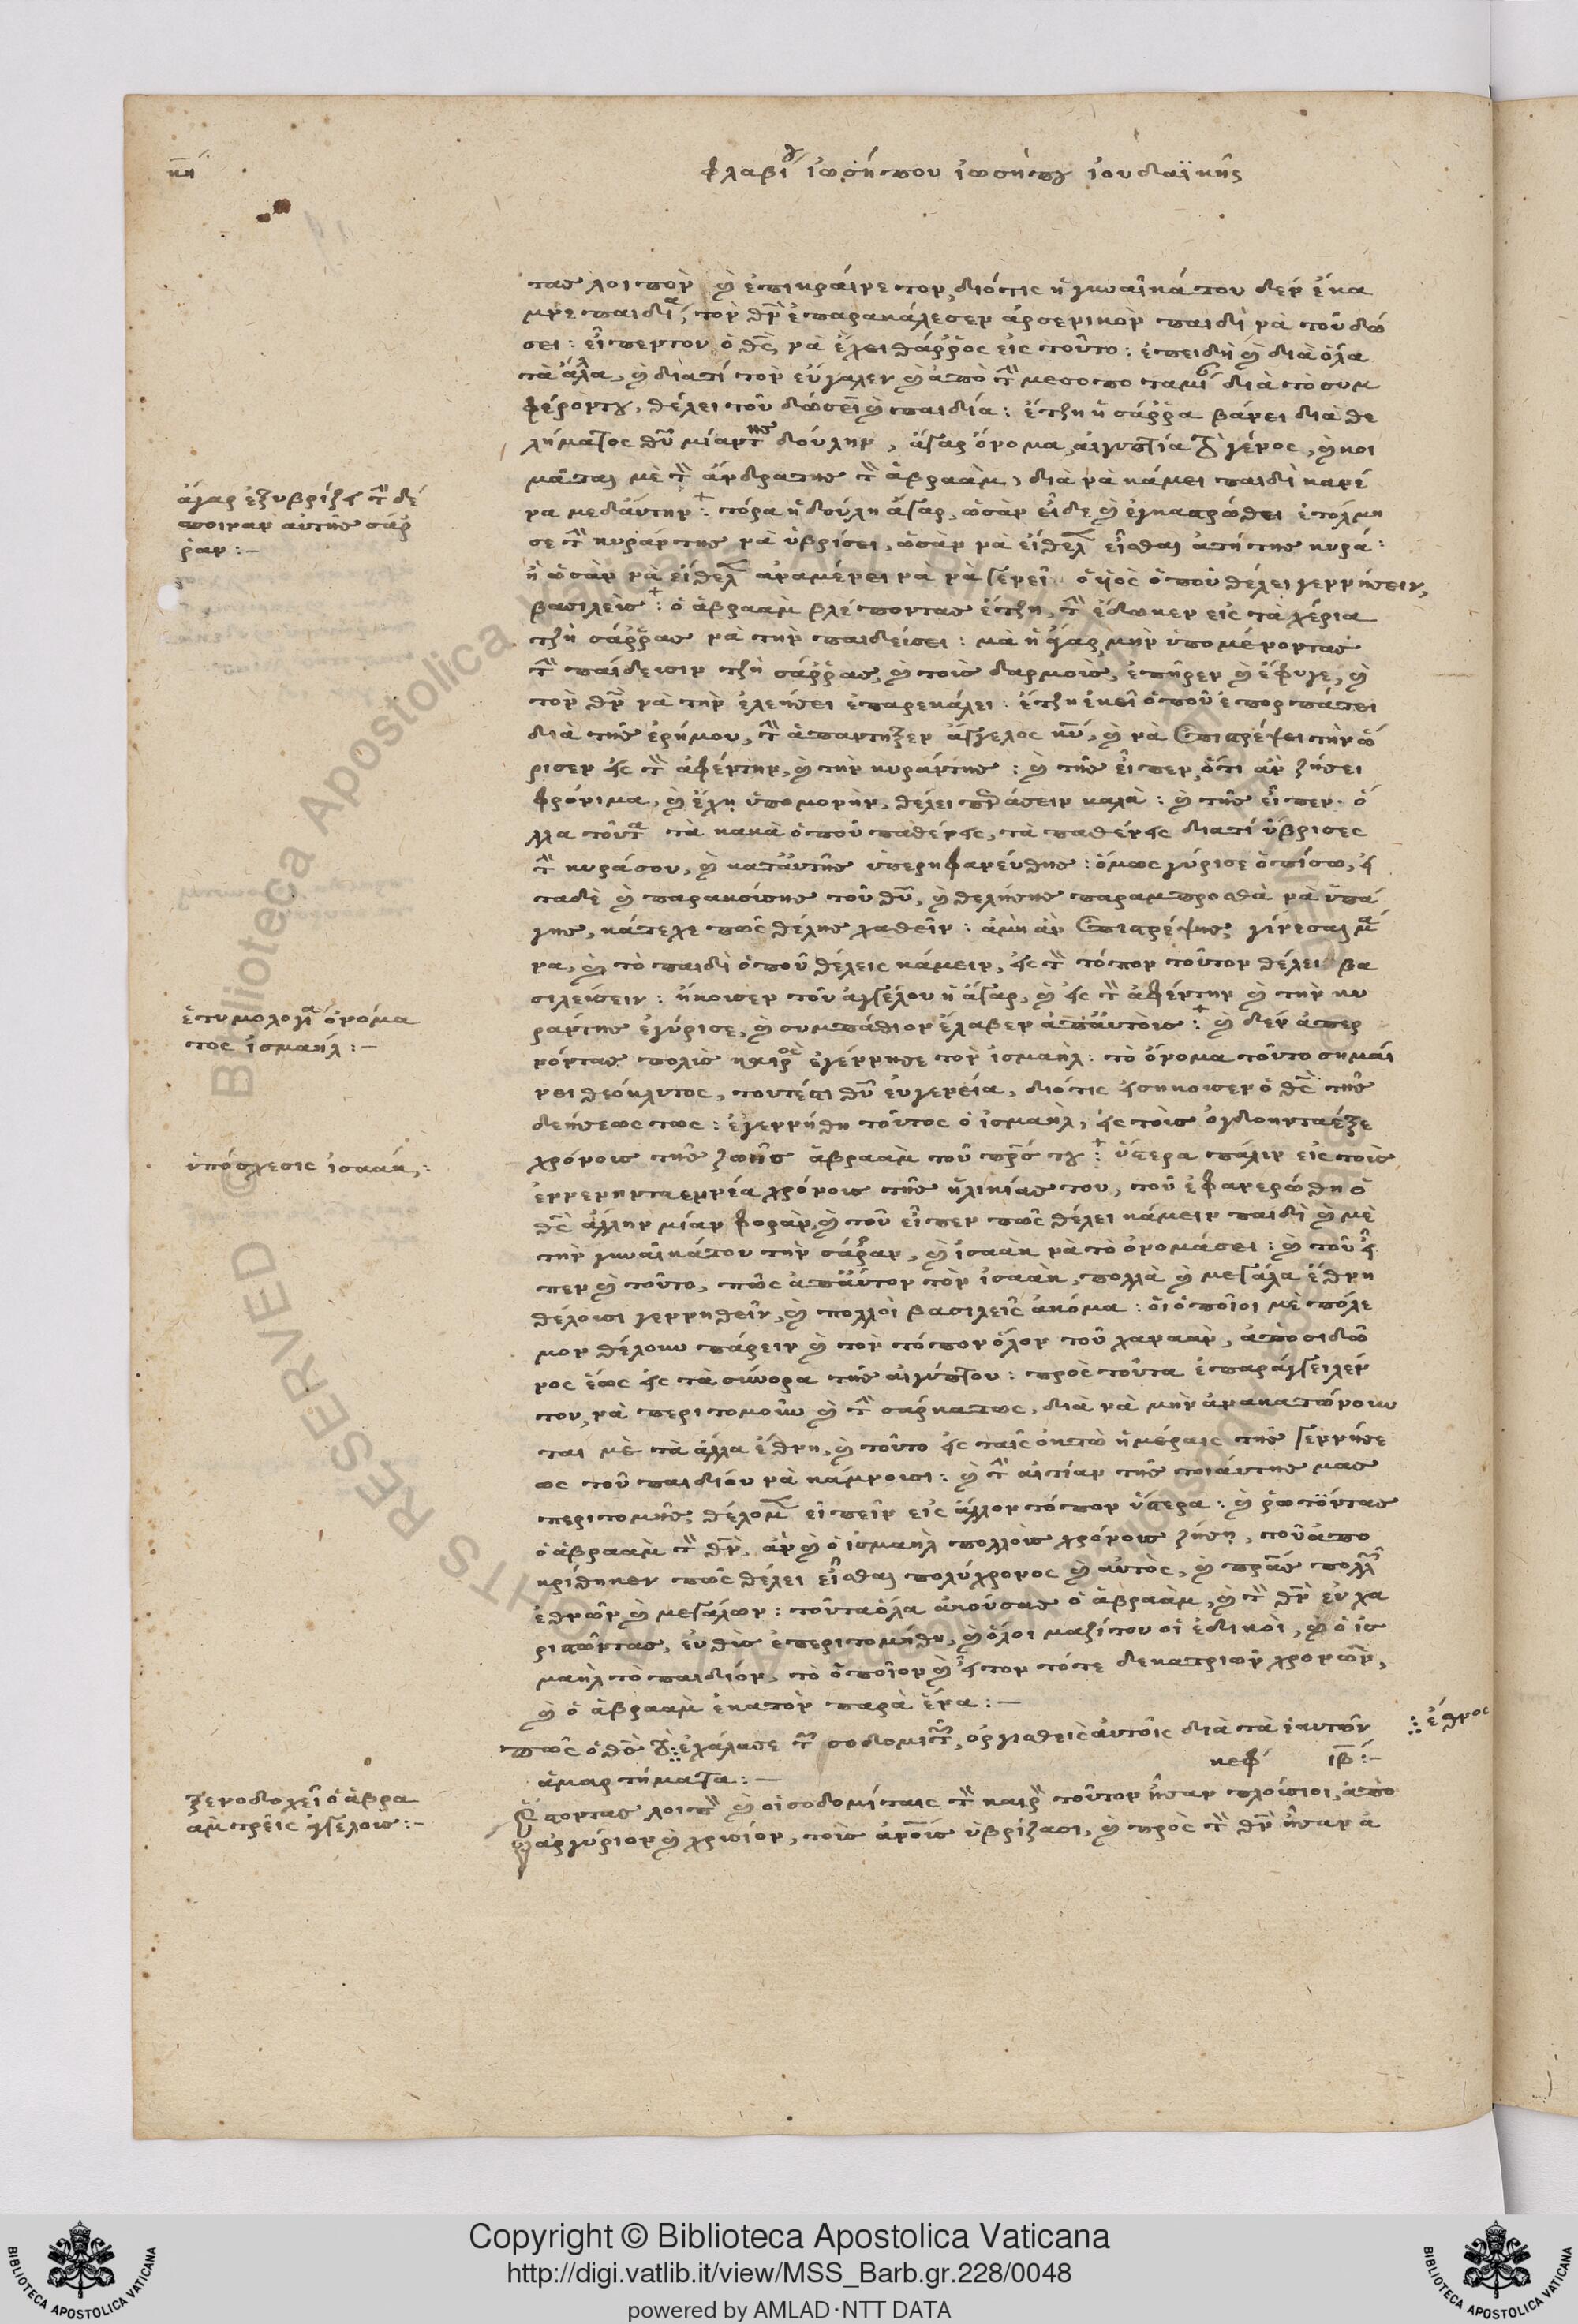 κη
φλαβίου ἰωσήπου ἰωσήπου ἰουδαϊκῆς
τας λοιπὸν καὶ ἐπικραίνετον, διότις ἡ γυναῖκάτου δὲν ἔκα
μνε παιδία, τὸν θν ἐπαρακάλεσεν ἀρσενικὸν παιδὶ νὰ τοῦ δώ
σει: εἶπεντον ὁ θς, νὰ ἔχει θάῤῥος εἰς τοῦτο: ἐπειδὴ καὶ διὰ ὅλα
τὰ ἄλλα, καὶ διατί τὸν εὔγαλεν καὶ ἀπὸ τὴν μεσοποταμίαν διὰ τὸ συμ
φέροντου, θέλει τοῦ δώσειν καὶ παιδία: ἔτζη ἡ σάῤῥα βάνει διὰ θε
λήματος θυ μίαν της δούλην, ἄγαρ ὄνομα, αἰγυπτία τὸ γένος, καὶ κοι
μᾶται μὲ τὸν ἄνδρατης τὸν ἀβραὰμ, διὰ νὰ κάμει παιδὶ κανέ
να μεδαύτην: τόρα ἡ δούλη ἄγαρ, ὡσὰν εἶδε καὶ ἐγκαστρώθει ἐτόλμη
σε τὴν κυράντης νὰ ὑβρίσει, ὡσὰν νὰ εἴθελεν εἶσθαι ἀτήτης κυρά:
ἢ ὡσὰν νὰ εἴθελεν ἀναμένει νὰ γένει ὁ υἱὸς ὁποῦ θέλει γεννήσειν,
βασιλεὺς: ὁ ἀβραὰμ βλέποντας ἔτζη, τὴν ἔδωκεν εἰς τὰ χέρια
τζὴ σάῤῥας νὰ τὴν παιδεύσει: μὰ ἡ ἄγαρ μὴν ὑπομένοντας
τὴν παίδευσιν τζὴ σάῤῥας, καὶ τοὺς δαρμοὺς, ἐπῆρεν καὶ ἔφυγε, καὶ
τὸν θν νὰ τὴν ἐλεήσει ἐπαρεκάλει: ἔτζη ἐκεῖ ὁποῦ ἐπορπάτει
διὰ τῆς ἐρήμου, τὴν ἀπαντηξεν ἄγγελος κυ, καὶ νὰ ἐπιστρέψει τὴν ὥ
ρισεν εἰς τὸν ἀφέντην, καὶ τὴν κυράντης: καὶ τῆς εἶπεν, ὅτι ἂν ζήσει
φρόνιμα, καὶ ἔχη ὑπομονὴν, θέλει περάσειν καλὰ: καὶ τῆς εἶπεν· ὅ
λλα τοῦτα τὰ κακὰ ὁποῦ παθένεις, τὰ παθένεις διατί ὕβρισες
τὴν κυράσου, καὶ καταὐτῆς ὑπερηφανεύθης: ὅμως γύρισε ὀπίσω, εἰ
ταδὲ καὶ παρακούσης τοῦ θυ, καὶ θελήσης παραμπροσθὰ νὰ ὑπά
γης, κάτεχε πῶς θέλης χαθεῖν: ἀμὴ ἂν ἐπιστρέψης, γίνεσαι μά
να, καὶ τὸ παιδὶ ὁποῦ θέλεις κάμειν, εἰς τὸν τόπον τοῦτον θέλει βα
σιλεύσειν: ἤκουσεν τοῦ ἀγγέλου ἡ ἄγαρ, καὶ εἰς τὸν ἀφέντην καὶ τὴν κυ
ράντης ἐγύρισε, καὶ συμπάθιον ἔλαβεν ἀπαὐτοὺς: καὶ δὲν ἀπερ
νόντας πολὺς καιρὸς ἐγέννησε τὸν ἰσμαὴλ: τὸ ὄνομα τοῦτο σημαί
νει θεόκλυτος, τουτέστι θυ εὐγενεία, διότις εἰσήκουσεν ὁ θς τῆς
δεήσεώς τως: ἐγεννήθη τοῦτος ὁ ἰσμαὴλ, εἰς τοὺς ὀγδοηνταέξε
χρόνους τῆς ζωῆς ἀβραὰμ τοῦ πρς του: ὕστερα πάλιν εἰς τοὺς
ἐννενηνταεννία χρόνους τῆς ἡλικίας του, τοῦ ἐφανερώθη ὁ
θς ἄλλην μίαν φορὰν, καὶ τοῦ εἶπεν πῶς θέλει κάμειν παιδὶ καὶ μὲ
τὴν γυναῖκάτου τὴν σάῤῥαν, καὶ ἰσαὰκ νὰ τὸ ὀνομάσει: καὶ τοῦ εἶ
πεν καὶ τοῦτο, πῶς ἀπαὐτον τὸν ἰσαὰκ, πολλὰ καὶ μεγάλα ἔθνη
θέλουσι γεννηθεῖν, καὶ πολλοὶ βασιλεῖς ἀκόμα: οἱ ὁποῖοι μὲ πόλε
μον θέλουν πάρειν καὶ τὸν τόπον ὅλον τοῦ χαναὰν, ἀπὸ σιδῶ
νος ἕως εἰς τὰ σύνορα τῆς αἰγύπτου: πρὸς τοῦτα ἐπαράγγειλέν
τον, νὰ περιτομοῦν καὶ τὴν σάρκατως, διὰ νὰ μὴν ἀνακατώνουν
ται μὲ τὰ ἄλλα ἔθνη, καὶ τοῦτο εἰς ταῖς ὀκτὼ ἡμέραις τῆς γεννήσε
ως τοῦ παιδίου νὰ κάμνουσι: καὶ τὴν αἰτίαν τῆς τοιαύτης μας
περιτομῆς, θέλομεν εἰπεῖν εἰς ἄλλον τόπον ὕστερα: καὶ ῥωτόντας
ὁ ἀβραὰμ τὸν θν, ἂν καὶ ὁ ἰσμαὴλ πολλοὺς χρόνους ζήση, τοῦ ἀπο
κρίθηκεν πῶς θέλει εἶσθαι πολύχρονος καὶ αὐτὸς, καὶ πρας πολλῶν
ἐθνῶν καὶ μεγάλων: τοῦτα ὅλα ἀκούσας ὁ ἀβραὰμ, καὶ τὸν θν εὐχα
ριστῶντας, εὐθὺς ἐπεριτομήθη, καὶ ὅλοι μαζίτου οἱ ἐδικοὶ, καὶ ὁ ἰσ
μαὴλ τὸ παιδίον, τὸ ὁποῖον καὶ εἶτον τότε δεκατριῶν χρονῶν,
καὶ ὁ ἀβραὰμ ἑκατὸν παρὰ ἕνα:—
πῶς ὁ θς τὸ ἐχάλασε τῶν σοδομιτῶν, ὀργισθεὶς αὐτοῖς διὰ τὰ ἑαυτῶν
ἔθνος
ἁμαρτήματα:— κεφ ιβ:—
ὄντας λοιπὸν καὶ οἱ σοδομίταις τὸν καιρὸν τοῦτον ἦσαν πλούσιοι, ἀπὸ
ἀργύριον καὶ χρυσίον, τοὺς ἀνους ὑβρίζασι, καὶ πρὸς τὸν θν ἦσαν ἀ
ἄγαρ ἐξυβρίζει τὴν δέ
σποιναν αὐτῆς σάῤ
ῥαν:—
ἐτυμολογία ὀνόμα
τος ἰσμαήλ:—
ὑπόσχεσις ἰσαάκ,:
ξενοδοχεῖ ὁ ἀβρα
ὰμ τρεῖς ἀγγέλους:—
Copyright © Biblioteca Apostolica Vaticana
http://digi.vatlib.it/view/MSS_Barb.gr.228/0048
powered by AMLAD·NTT DATA
BIBLIOTECA APOSTOLICA VATICANA
BIBLIOTECA APOSTOLICA VATICANA